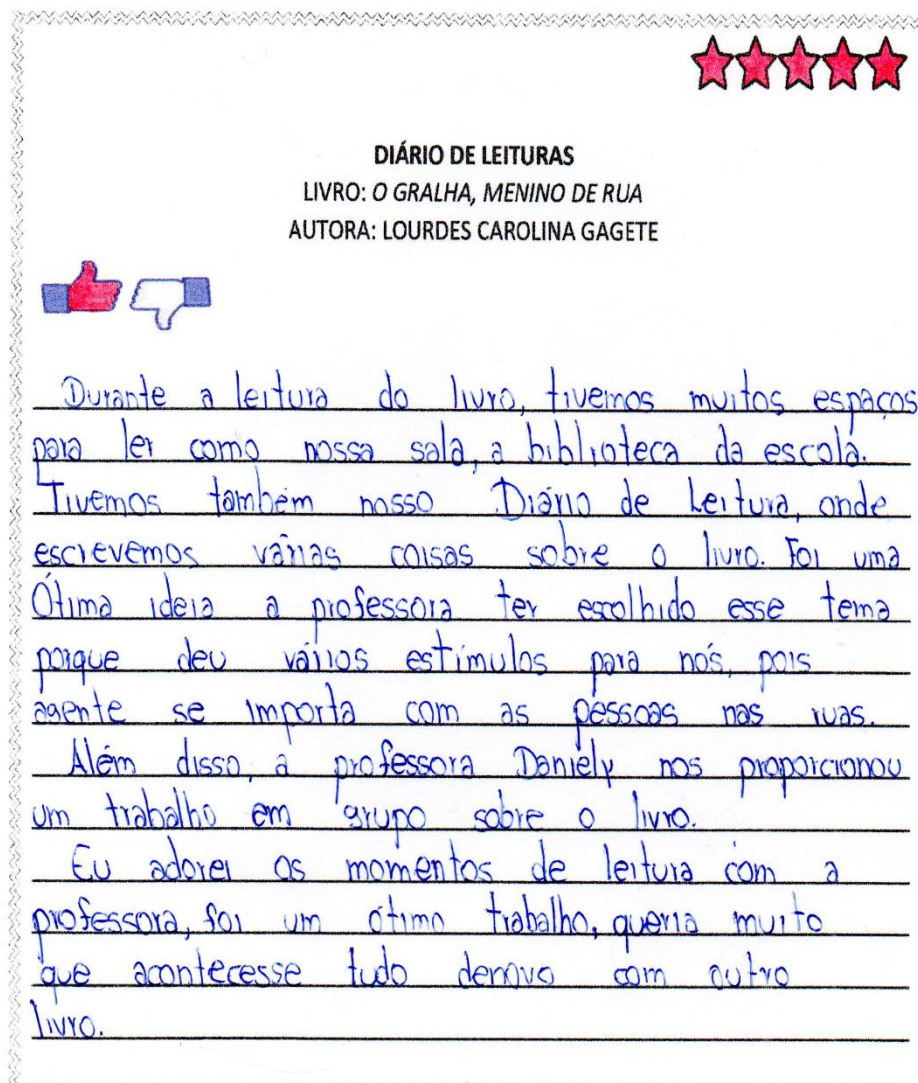 DIÁRIO DE LEITURAS
LIVRO: O GRALHA, MENINO DE RUA
AUTORA: LOURDES CAROLINA GAGETE
Durante a leitura do livro, tivemos muitos espaços
para ler como nossa sala, a biblioteca da escola.
Tivemos também nosso Diário de Leitura, onde
escrevemos várias coisas sobre o livro. Foi uma
Ótima ideia a professora ter escolhido esse tema
porque deu vários estímulos para nós, pois
agente se importa com as pessoas nas ruas.
Além disso, a professora Daniely nos proporcionou
um trabalho em grupo sobre o livro.
Eu adorei os momentos de leitura com a
professora, foi um ótimo trabalho, queria muito
que acontecesse tudo denovo com outro
livro.